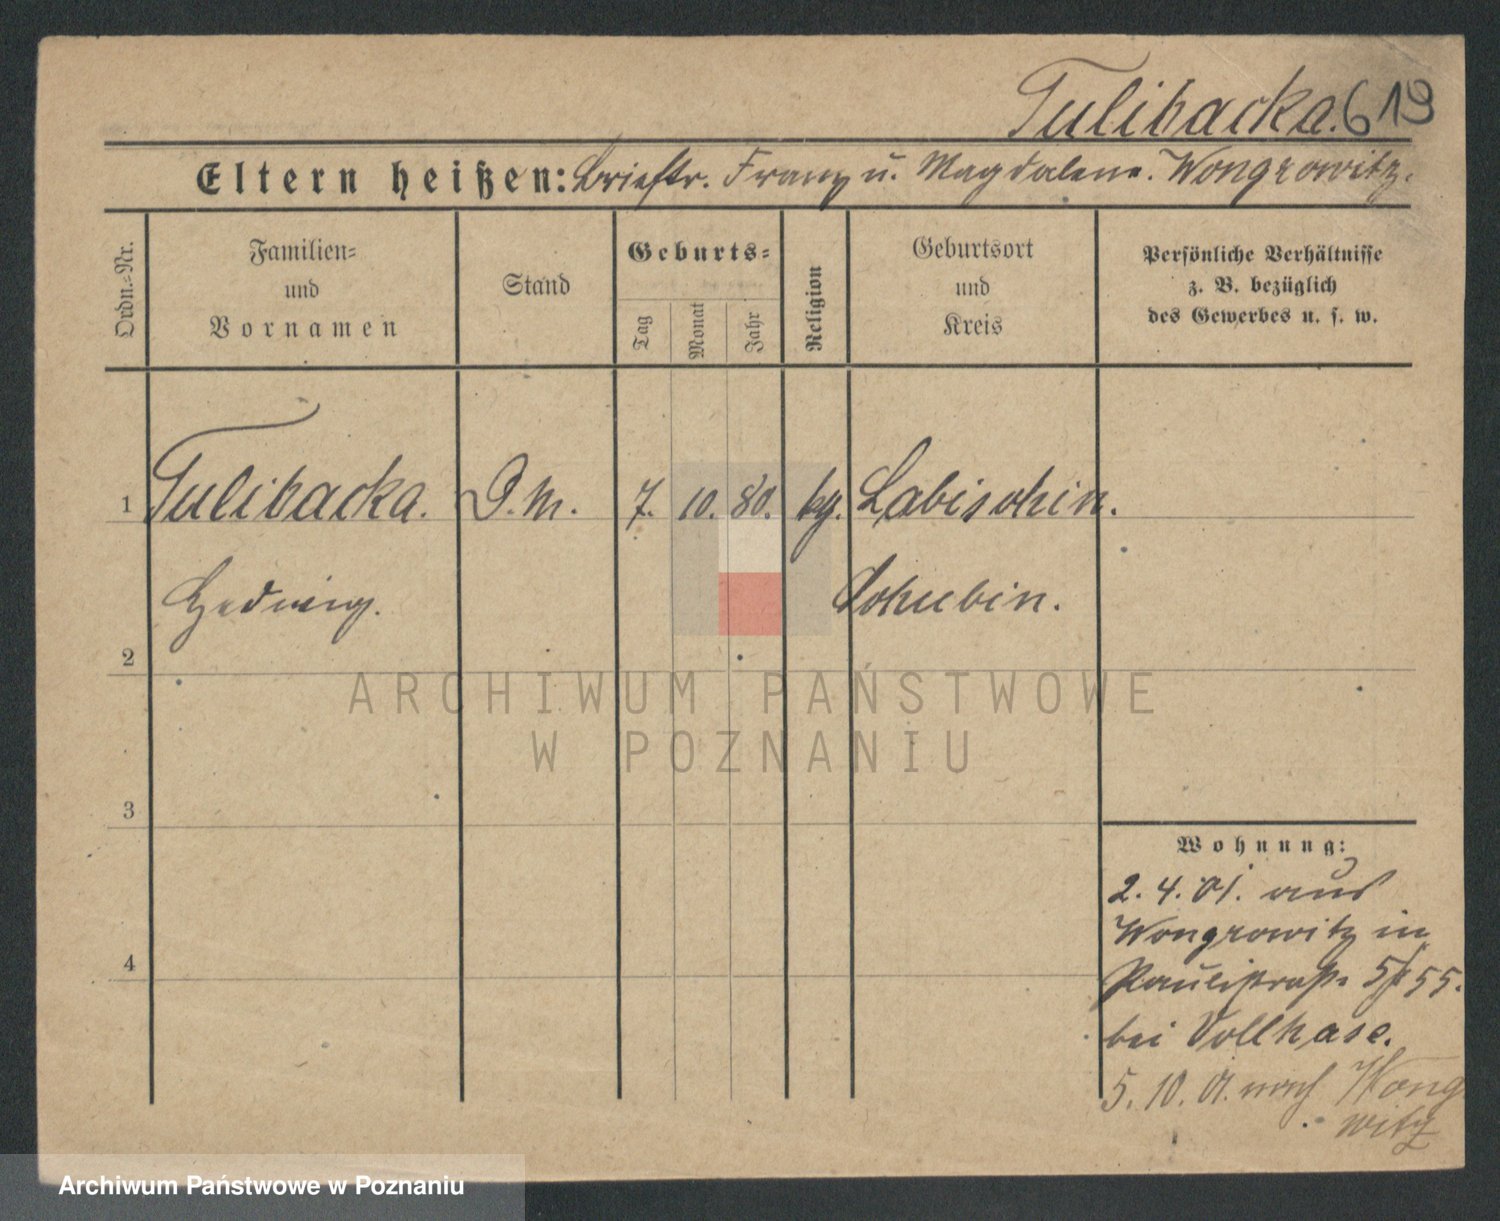 Tulibacka. 619
Eltern heißen: Brieftr. Franz u. Magdalene. Wongrowitz.
Ordn.-Nr.
Familien-
und
Vornamen
Stand
Geburts-
Tag
Monat
Jahr
Religion
Geburtsort
und
Kreis
Persönliche Verhältnisse
z. B. bezüglich
des Gewerbes u. s. w.
1 Tulibacka. D. M. 7. 10. 80. kg. Labischin.
Hedwig. Schubin.
2
ARCHIWUM PAŃSTWOWE
W POZNANIU
3
Wohnung:
2. 4. 01. aus
Wongrowitz in
4
Paulistraße 55.
bei Vollhase.
5. 10. 01. nach Wong
witz
Archiwum Państwowe w Poznaniu